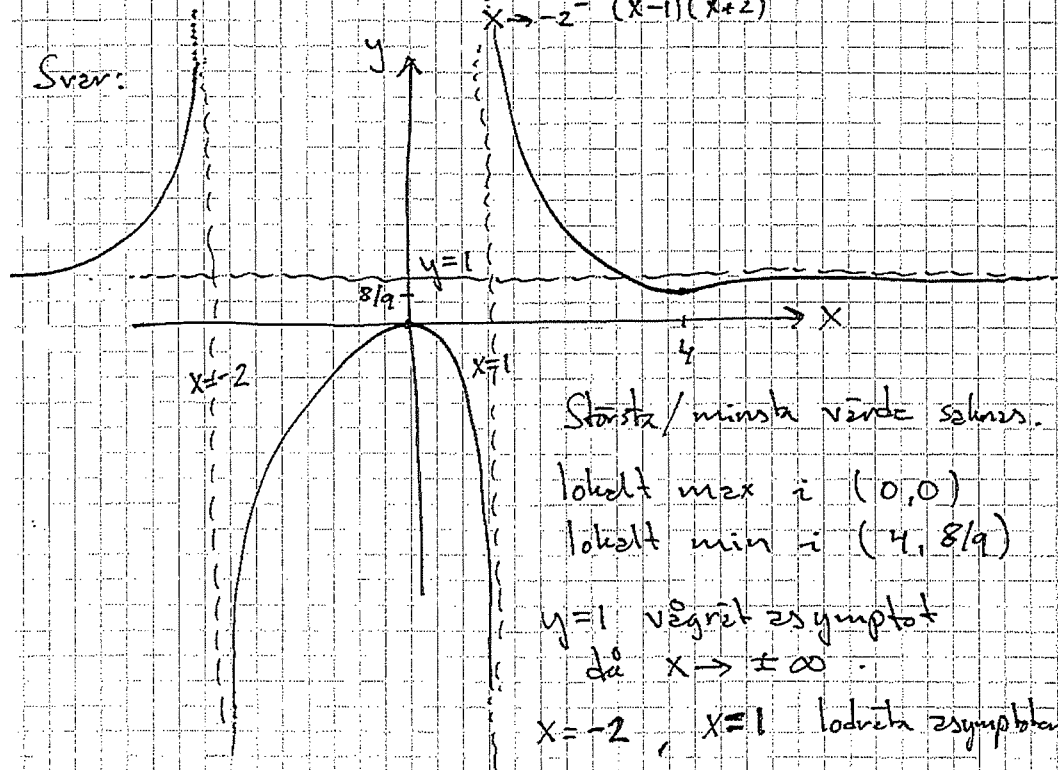 x → -2⁻ (x-1)(x+2)
Svar:
y
y=1
8/9
x
4
x=-2
x=1
Största/minsta värde saknas.
lokalt max i (0,0)
lokalt min i (4, 8/9)
y=1 vågrät asymptot
då x → ±∞.
x=-2, x=1 lodräta asymptoter